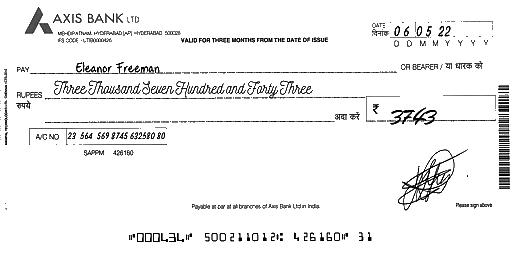 AXIS BANK LTD
MEHDIPATNAM, HYDERABAD [AP] HYDERABAD 500028
IFS CODE - UTIB0000426
VALID FOR THREE MONTHS FROM THE DATE OF ISSUE
DATE
दिनांक
0 6 0 5 22
D D M M Y Y Y Y
PAY Eleanor Freeman OR BEARER / या धारक को
RUPEES Three Thousand Seven Hundred and Forty Three
रुपये
अदा करें ₹ 3743
A/C NO 23 564 569 8745 632580 80
SAPPM 426160
Payable at par at all branches of Axis Bank Ltd in India.
Please sign above
⑈000434⑈ 500211012⑆ 426160⑈ 31